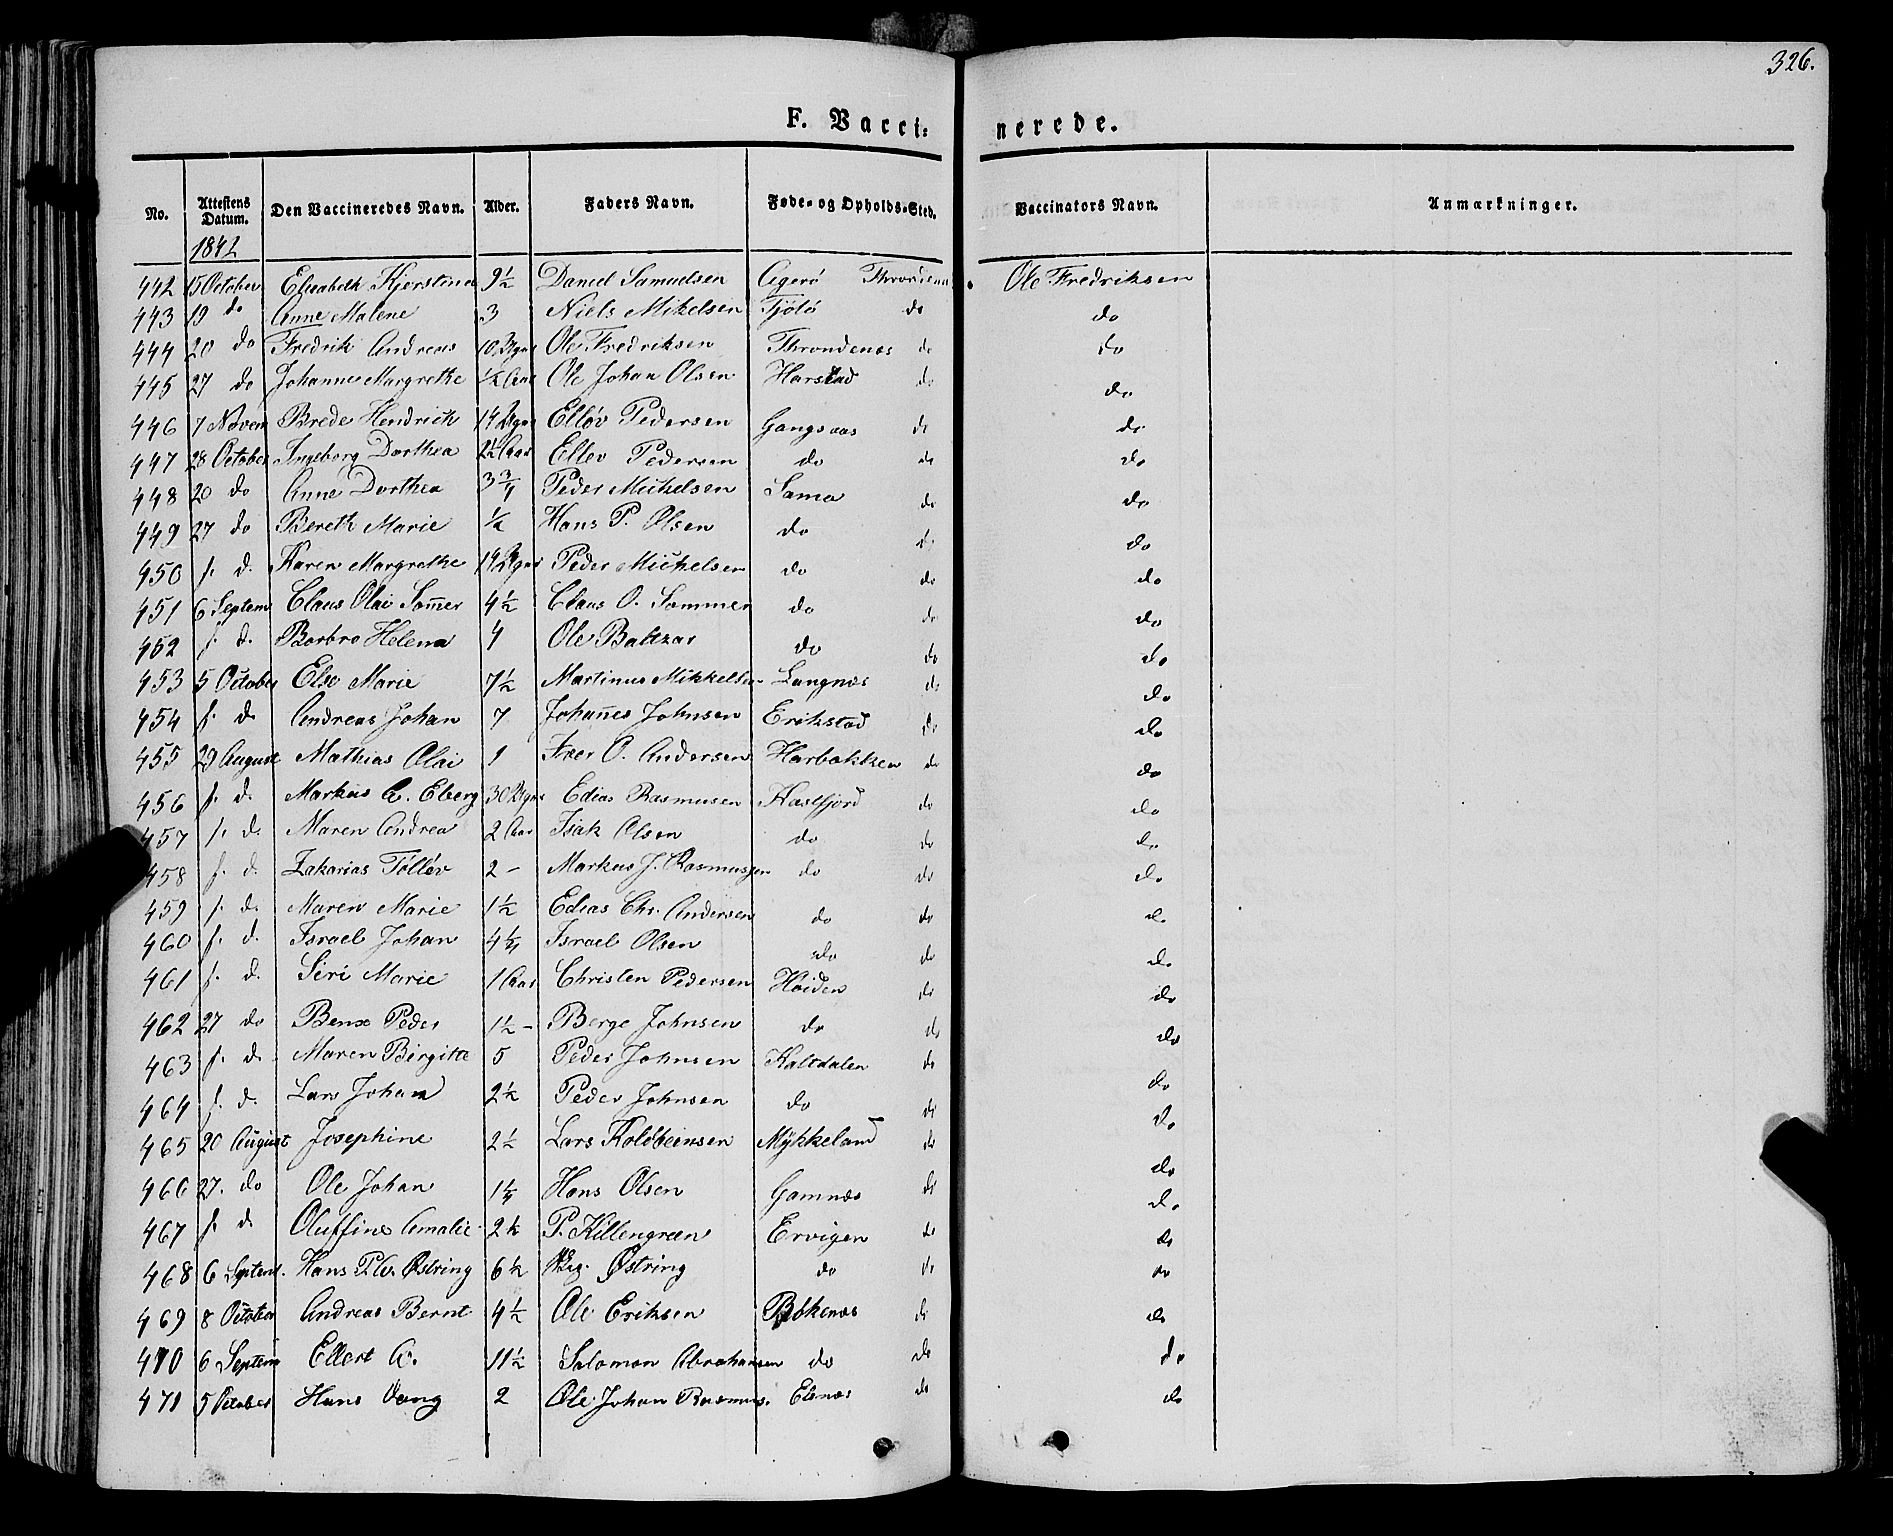 326.
F. Vacci=nerede.
No. Attestens Datum. Den Vaccineredes Navn. Alder. Faders Navn. Føde- og Opholds-Sted. Vaccinators Navn. Anmærkninger.
1842
442 15 October Elisabeth Kjerstina 9½ Daniel Samuelsen Agerø Throndenæs Ole Fredriksen
443 19 do Anne Malene 3 Niels Mikelsen Tjøtø do do
444 20 do Fredrik Andreas 10 Ole Fredriksen Throndenæs do do
445 27 do Johanne Margrethe ½ Aar Ole Johan Olsen Harstad do do
446 7 Novem Brede Hendrich 14 Elløv Pedersen Gangsaas do do
447 28 October Ingeborg Dorthea 2½ Aar Ellev Pedersen do do do
448 20 do Anne Dorthea 3¾ Peder Michelsen Sama do do
449 27 do Bereth Marie ½ Hans P. Olsen do do do
450 f. d. Karen Margrethe 14 Peder Michelsen do do do
451 6 Septem Claus Olai Som̄er 4½ Claus O. Sommer do do do
452 f. d. Barbro Helena 4 Ole Baltzar do do do
453 5 October Else Marie 7½ Martinus Mikkelsen Langnæs do do
454 f. d. Andreas Johan 7 Johan̄es Johnsen Erikstad do do
455 29 August Mathias Olai 1 Iver O. Andersen Harbakken do do
456 f. d. Markus A. Eberg 30 Edias Rasmusen Kastfjord do do
457 f. d. Maren Andrea 2 Aar Isak Olsen do do do
458 f. d. Zakarias Tølløv 2 - Markus J. Rasmussen do do do
459 f. d. Maren Marie 1½ Edias Chr. Andersen do do do
460 f. d. Israel Johan 4¼ Israel Olsen do do do
461 f. d. Siri Marie 1 Aar Christen Pedersen Høiden do do
462 27 do Benx Peder 1½ - Berge Johnsen do do do
463 f. d. Maren Birgitte 5 Peder Johnsen Kaltdalen do do
464 f. d. Lars Johan 2½ Peder Johnsen do do do
465 20 August Josephine 2½ Lars Koldbeensen Mÿkkeland do do
466 27. do Ole Johan 1¼ Hans Olsen Gamnæs do do
467 f. d. Oluffine Amalie 2½ P. Killengreen Ervigen do do
468 6 Septem. Hans Østring 6½ Østring do do do
469 8 October Andreas Bernt 4½ Ole Eriksen Røkenæs do do
470 6 Septem Ellert A. 11½ Salomon Abrahamsen do do do
471 5 October Hans Vang 2 Ole Johan Rasmus. Elsnæs do do